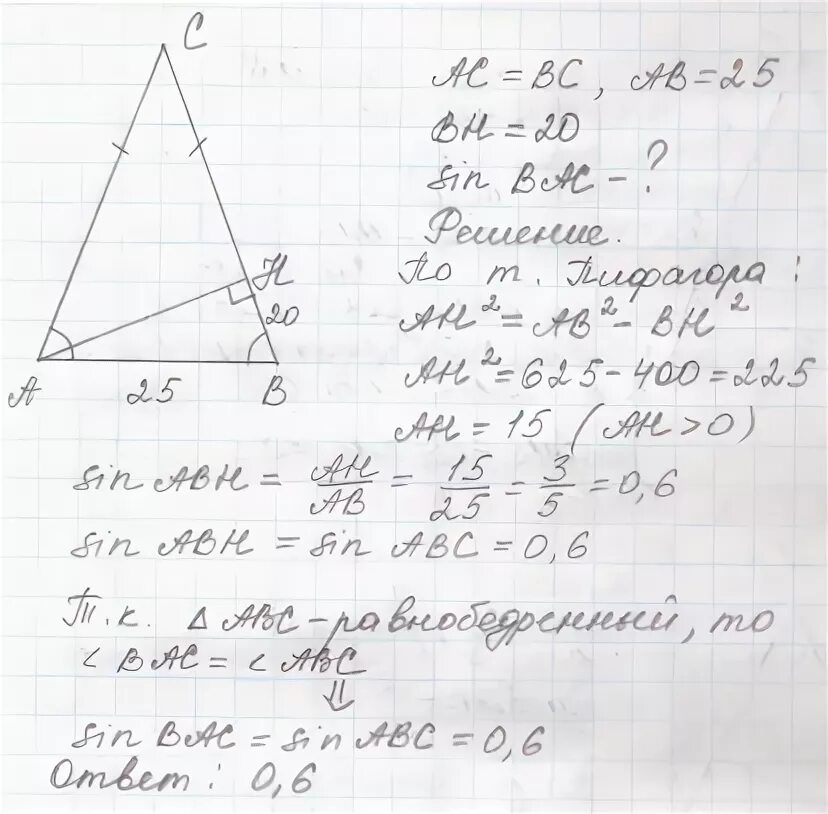 C
AC = BC, AB = 25
BH = 20
sin BAC - ?
Решение.
H
По т. Пифагора:
20
AH² = AB² - BH²
A 25 B
AH² = 625 - 400 = 225
AH = 15 (AH > 0)
sin ABH = AH/AB = 15/25 = 3/5 = 0,6
sin ABH = sin ABC = 0,6
Т.к. △ ABC - равнобедренный, то
∠ BAC = ∠ ABC
⇓
sin BAC = sin ABC = 0,6
Ответ: 0,6